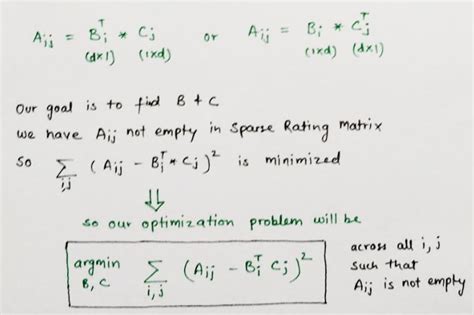 Aij = Bi^T * Cj or Aij = Bi * Cj^T
(d×1) (1×d) (1×d) (d×1)
Our goal is to find B & C
we have Aij not empty in Sparse Rating matrix
so Σ i,j (Aij - Bi^T * Cj)^2 is minimized
⇓
so our optimization problem will be
argmin B, C Σ i, j (Aij - Bi^T Cj)^2
across all i, j
such that
Aij is not empty